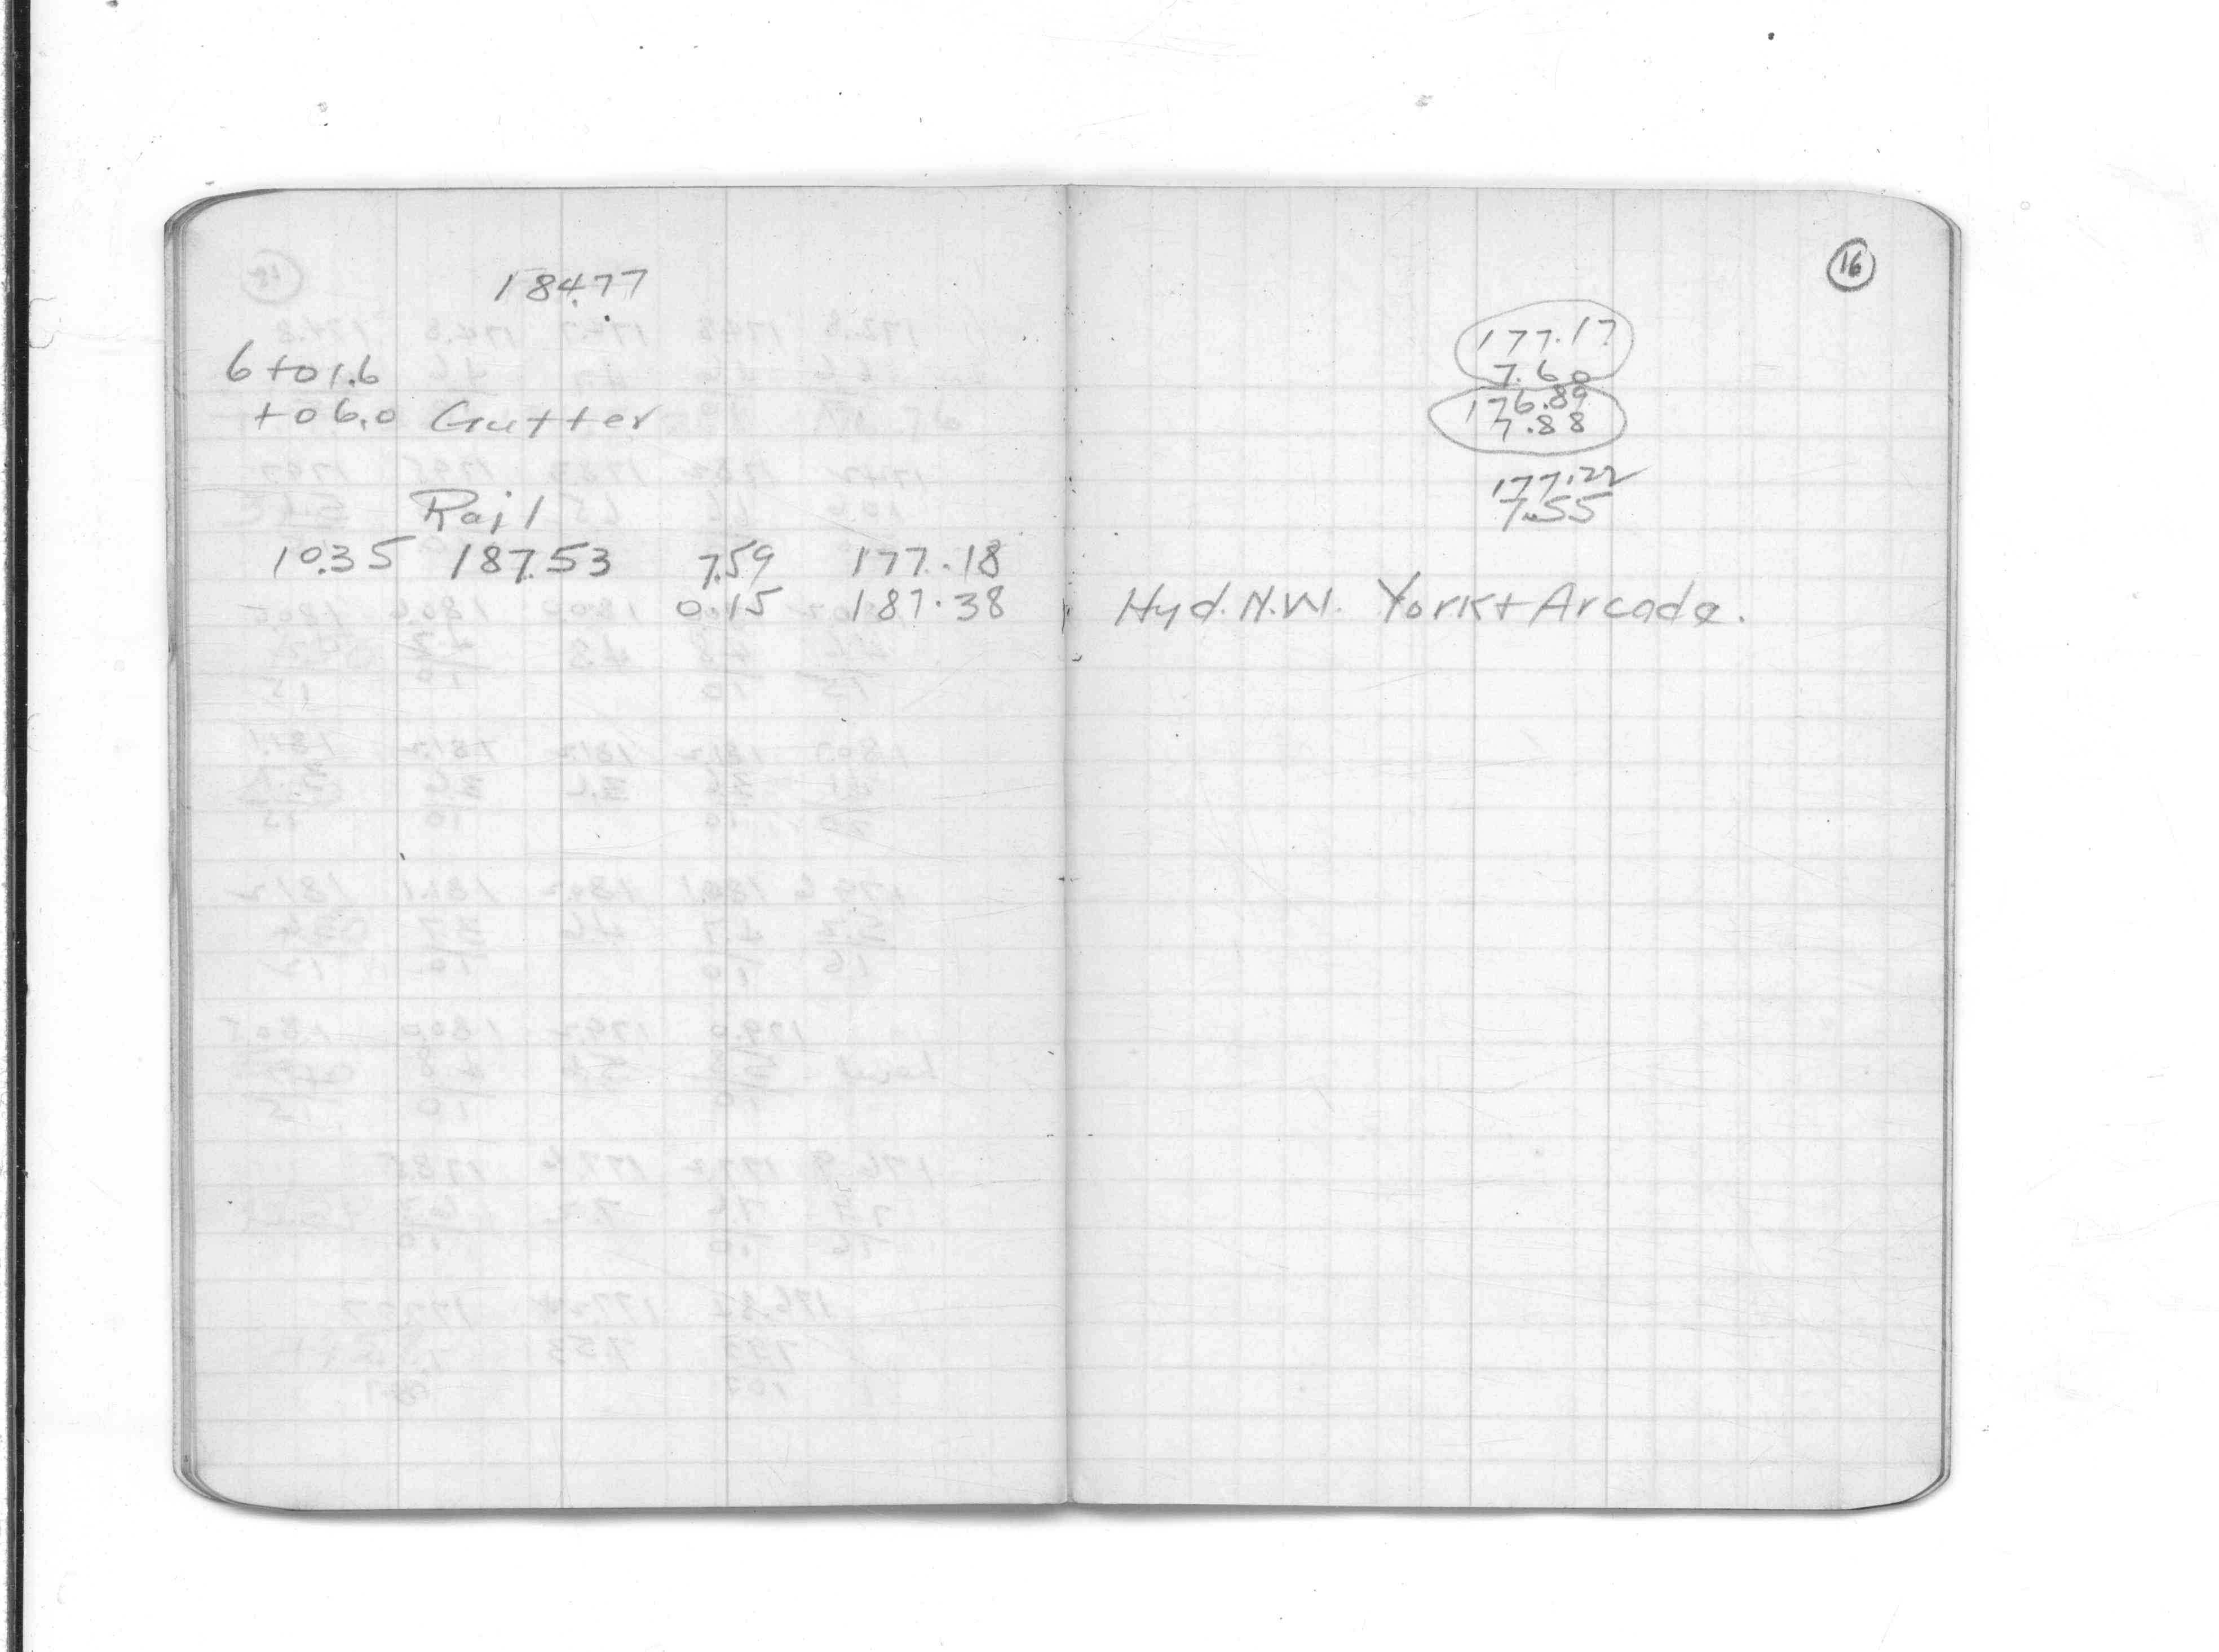 184.77
6+01.6
+06.0 Gutter
Rail
10.35 187.53 7.59 177.18
0.15 187.38
16
177.17
7.60
176.89
7.88
177.22
7.55
Hyd. N.W. York + Arcade.